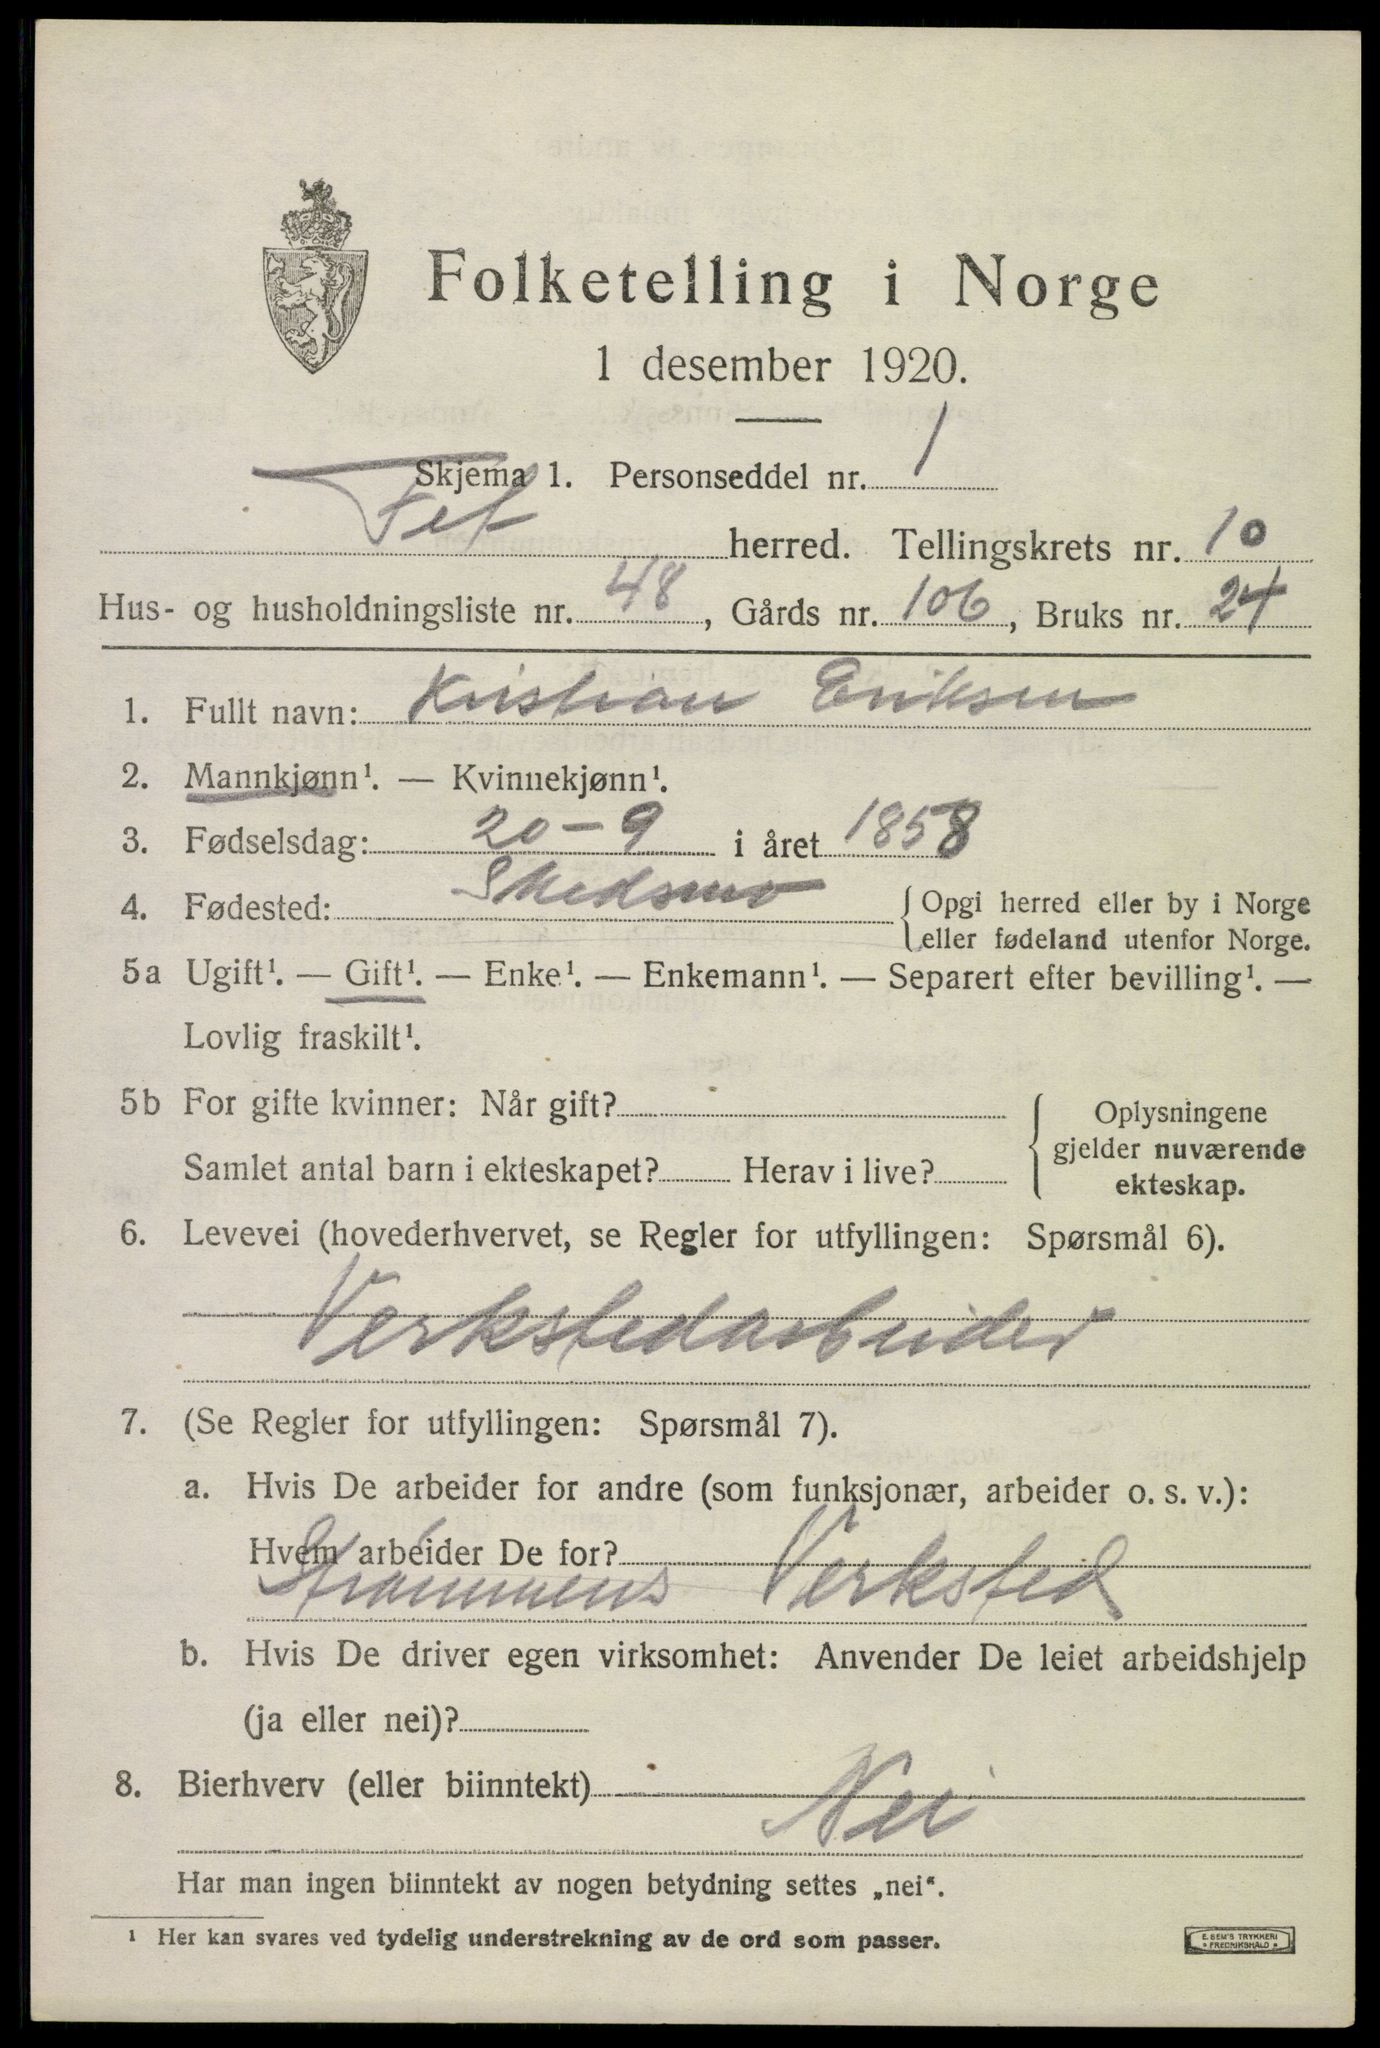 Folketelling i Norge
1 desember 1920.
Skjema 1. Personseddel nr. 1
Fet herred. Tellingskrets nr. 10
Hus- og husholdningsliste nr. 48, Gårds nr. 106, Bruks nr. 24
1. Fullt navn: Kristian Eriksen
2. Mannkjønn¹. — Kvinnekjønn¹.
3. Fødselsdag: 20-9 i året 1858
4. Fødested: Skedsmo { Opgi herred eller by i Norge
eller fødeland utenfor Norge.
5a Ugift¹. — Gift¹. — Enke¹. — Enkemann¹. — Separert efter bevilling¹. —
Lovlig fraskilt¹.
5b For gifte kvinner: Når gift?
Samlet antal barn i ekteskapet? Herav i live?
{ Oplysningene
gjelder nuværende
ekteskap.
6. Levevei (hovederhvervet, se Regler for utfyllingen: Spørsmål 6).
Verkstedarbeider
7. (Se Regler for utfyllingen: Spørsmål 7).
a. Hvis De arbeider for andre (som funksjonær, arbeider o. s. v.):
Hvem arbeider De for?
Strømmens Verksted
b. Hvis De driver egen virksomhet: Anvender De leiet arbeidshjelp
(ja eller nei)?
8. Bierhverv (eller biinntekt)
Nei
Har man ingen biinntekt av nogen betydning settes „nei“.
¹ Her kan svares ved tydelig understrekning av de ord som passer.
E. SEM'S TRYKKERI
• FREDRIKSHALD •